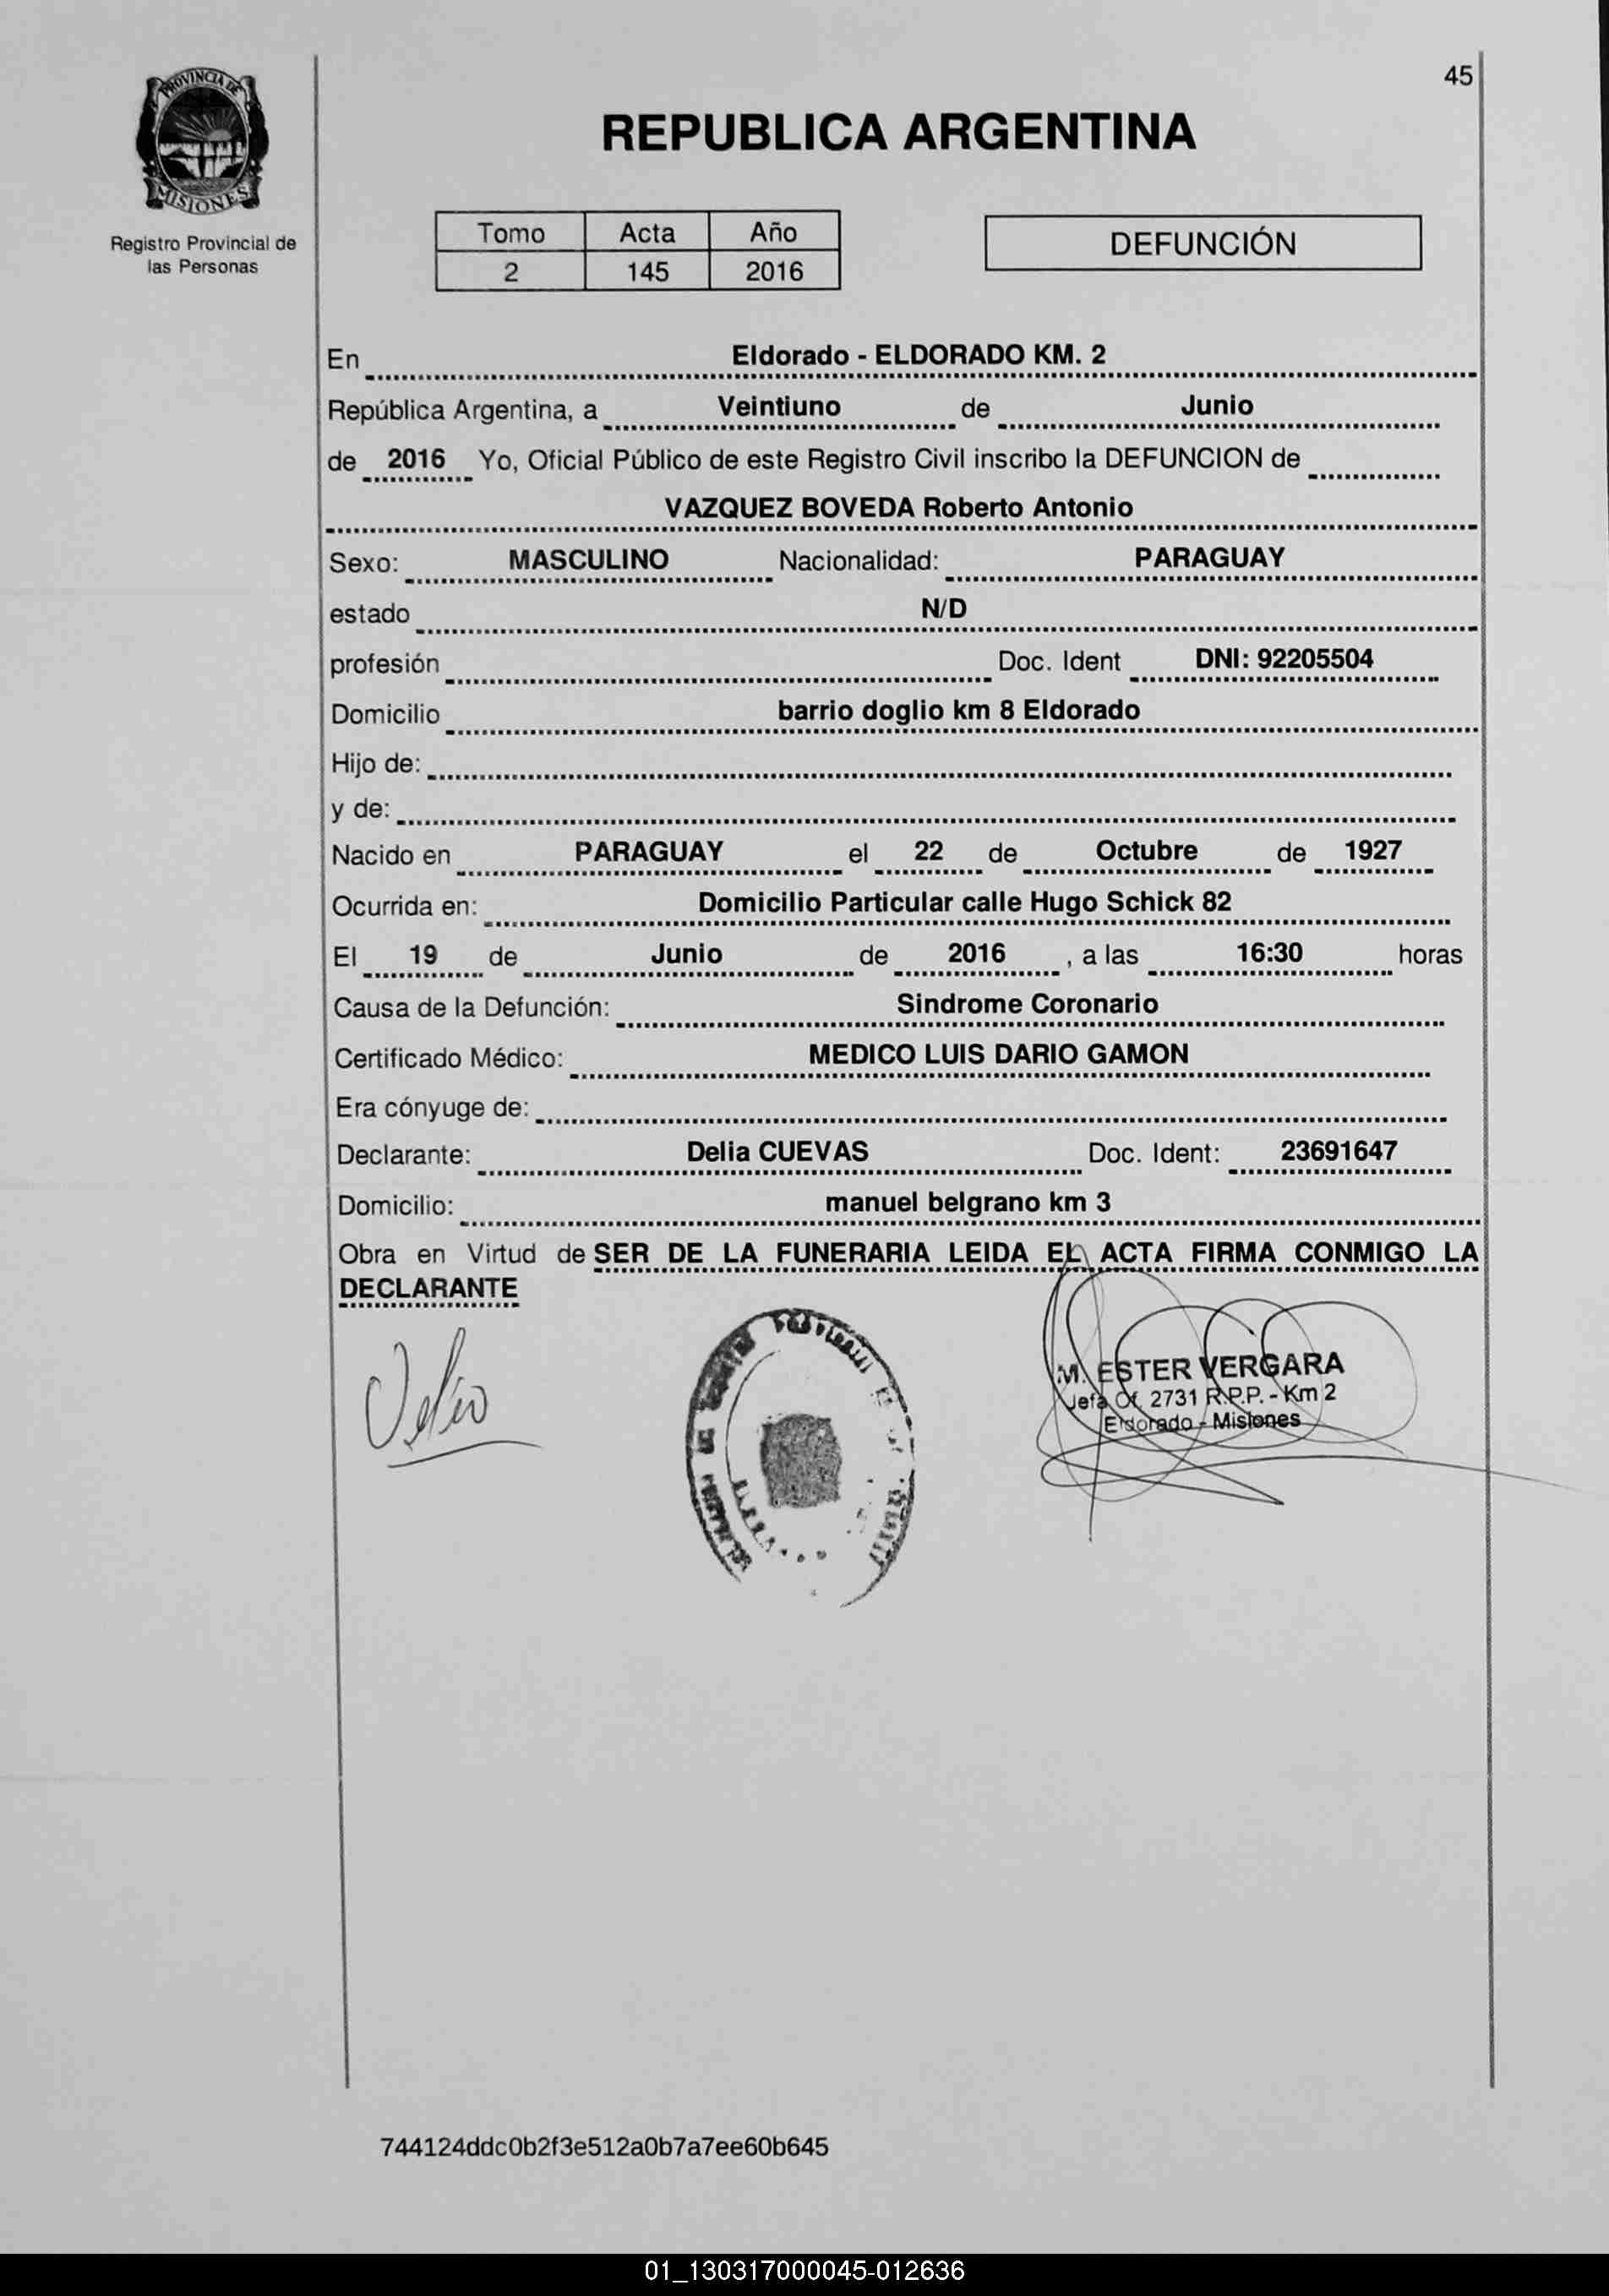 45
PROVINCIA DE
MISIONES
Registro Provincial de
las Personas
REPUBLICA ARGENTINA
Tomo Acta Año
2 145 2016
DEFUNCIÓN
En Eldorado - ELDORADO KM. 2
República Argentina, a Veintiuno de Junio
de 2016 Yo, Oficial Público de este Registro Civil inscribo la DEFUNCION de
VAZQUEZ BOVEDA Roberto Antonio
Sexo: MASCULINO Nacionalidad: PARAGUAY
estado N/D
profesión Doc. Ident DNI: 92205504
Domicilio barrio doglio km 8 Eldorado
Hijo de:
y de:
Nacido en PARAGUAY el 22 de Octubre de 1927
Ocurrida en: Domicilio Particular calle Hugo Schick 82
El 19 de Junio de 2016 , a las 16:30 horas
Causa de la Defunción: Sindrome Coronario
Certificado Médico: MEDICO LUIS DARIO GAMON
Era cónyuge de:
Declarante: Delia CUEVAS Doc. Ident: 23691647
Domicilio: manuel belgrano km 3
Obra en Virtud de SER DE LA FUNERARIA LEIDA EL ACTA FIRMA CONMIGO LA
DECLARANTE
M. ESTER VERGARA
Jefa Of. 2731 R.P.P. - Km 2
Eldorado - Misiones
744124ddc0b2f3e512a0b7a7ee60b645
01_130317000045-012636